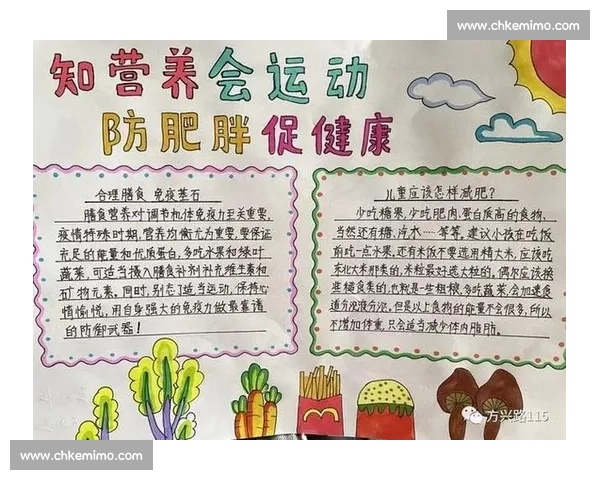 www.chkemimo.com
知营养会运动
防肥胖促健康
合理膳食 免疫基石
膳食营养对调节机体免疫力至关重要,
疫情特殊时期,营养均衡尤为重要,要保证
充足的能量和优质蛋白,多吃水果和绿叶
蔬菜,可适当摄入膳食补剂补充维生素和
矿物元素。同时,别忘了适当运动,保持心
情愉悦,用自身强大的免疫力做最靠谱
的防御武器!
儿童应该怎样减肥?
少吃糖果,少吃肥肉,蛋白质高的食物,
当然还有糖,汽水……等等,建议小孩在吃饭
前吃一点水果,还有米饭不要选用精大米,应该吃
东北大米那类的,米粒最好选大粒的。偶尔应该换
些糙食类的,也就是一些粗粮,多吃蔬菜,会加速食
适分泌液分泌。但是以上食物的能量不会很多,所以
不增加体重,只会适当减少体内脂肪。
方兴路115
www.chkemimo.com